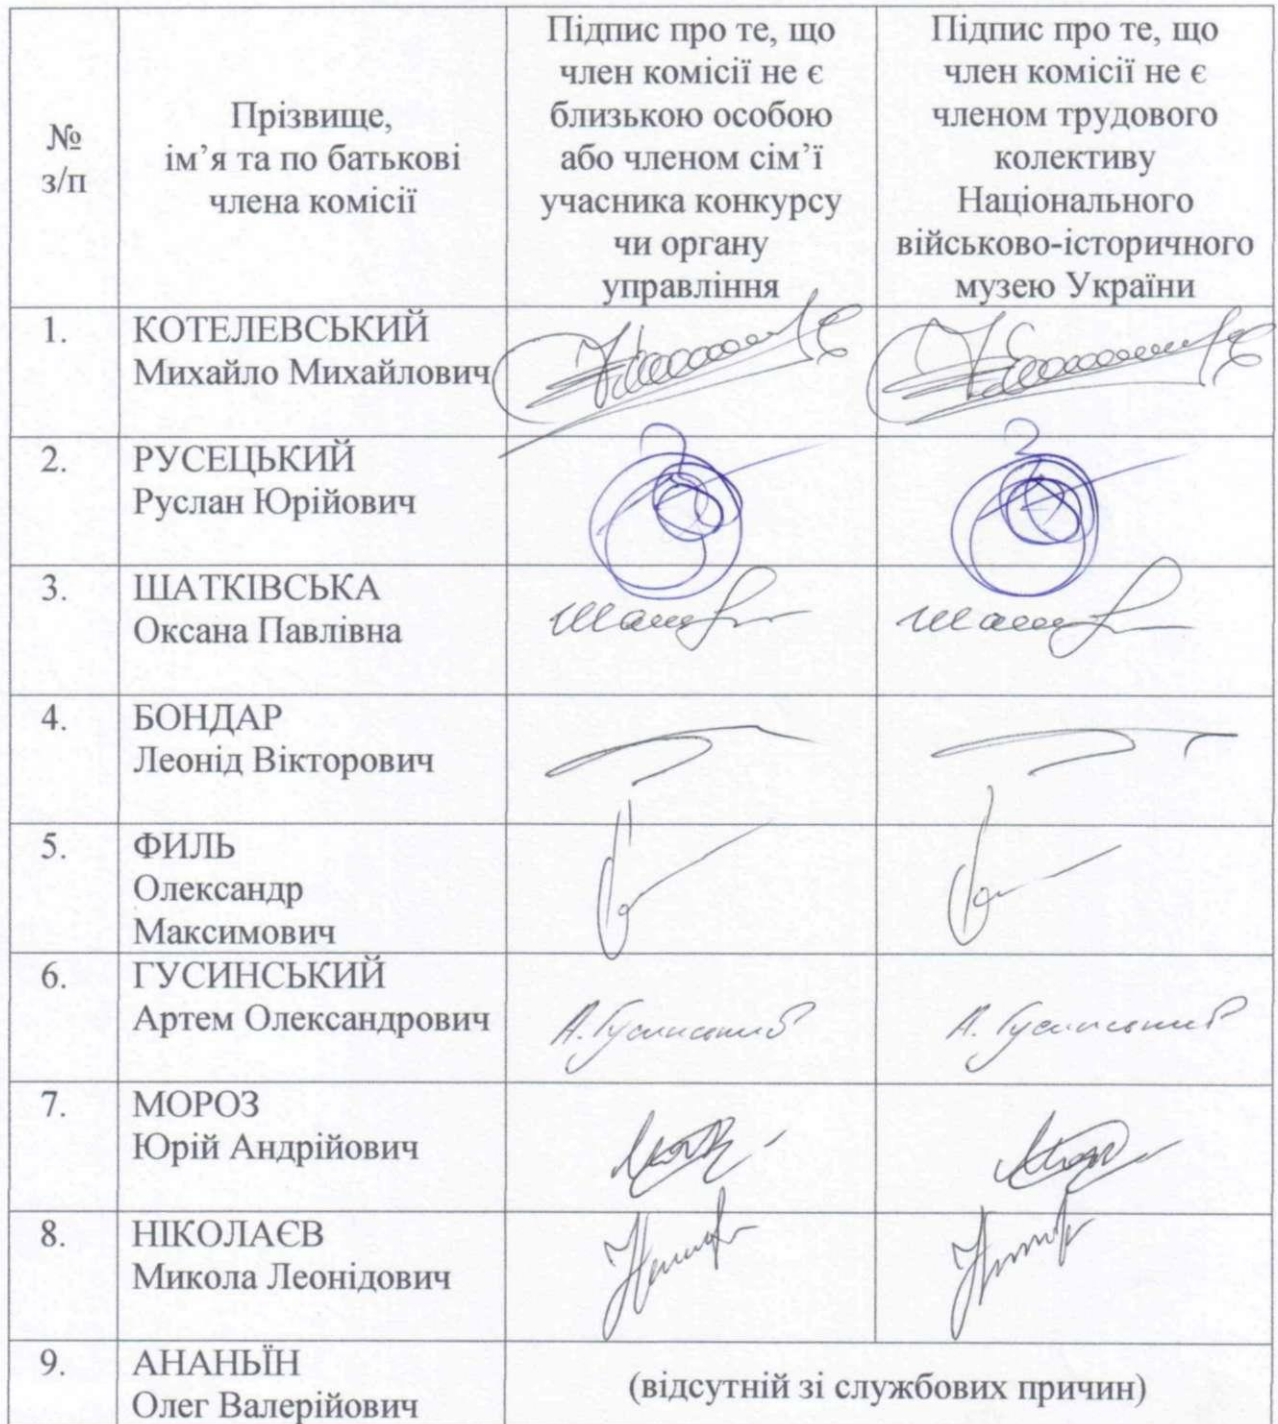 №
з/п
Прізвище,
ім’я та по батькові
члена комісії
Підпис про те, що
член комісії не є
близькою особою
або членом сім’ї
учасника конкурсу
чи органу
управління
Підпис про те, що
член комісії не є
членом трудового
колективу
Національного
військово-історичного
музею України
1.
КОТЕЛЕВСЬКИЙ
Михайло Михайлович
2.
РУСЕЦЬКИЙ
Руслан Юрійович
3.
ШАТКІВСЬКА
Оксана Павлівна
4.
БОНДАР
Леонід Вікторович
5.
ФИЛЬ
Олександр
Максимович
6.
ГУСИНСЬКИЙ
Артем Олександрович
А. Гусинський
А. Гусинський
7.
МОРОЗ
Юрій Андрійович
8.
НІКОЛАЄВ
Микола Леонідович
9.
АНАНЬЇН
Олег Валерійович
(відсутній зі службових причин)